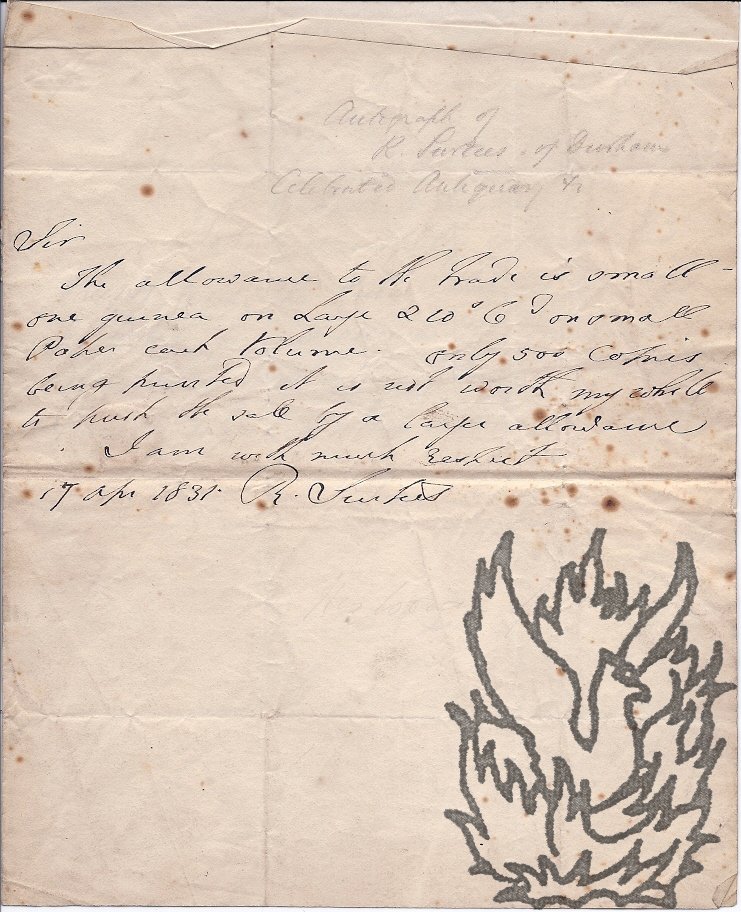 Autograph of
R. Surtees. of Durham
Celebrated Antiquary &c
Sir
The allowance to the trade is small -
one guinea on Large & 10s 6d on small
Paper each Volume. only 500 Copies
being printed it is not worth my while
to push the sale by a large allowance
I am with much respect
17 Apr 1831. R. Surtees